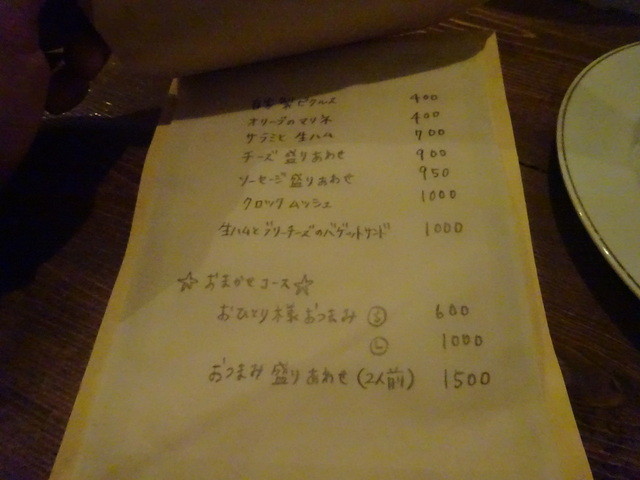 自家製ピクルス 400
オリーブのマリネ 400
サラミと生ハム 700
チーズ盛りあわせ 900
ソーセージ盛りあわせ 950
クロックムッシュ 1000
生ハムとブリーチーズのバゲットサンド 1000
☆おまかせコース☆
おひとり様おつまみ Ⓢ 600
Ⓛ 1000
おつまみ盛りあわせ(2人前) 1500